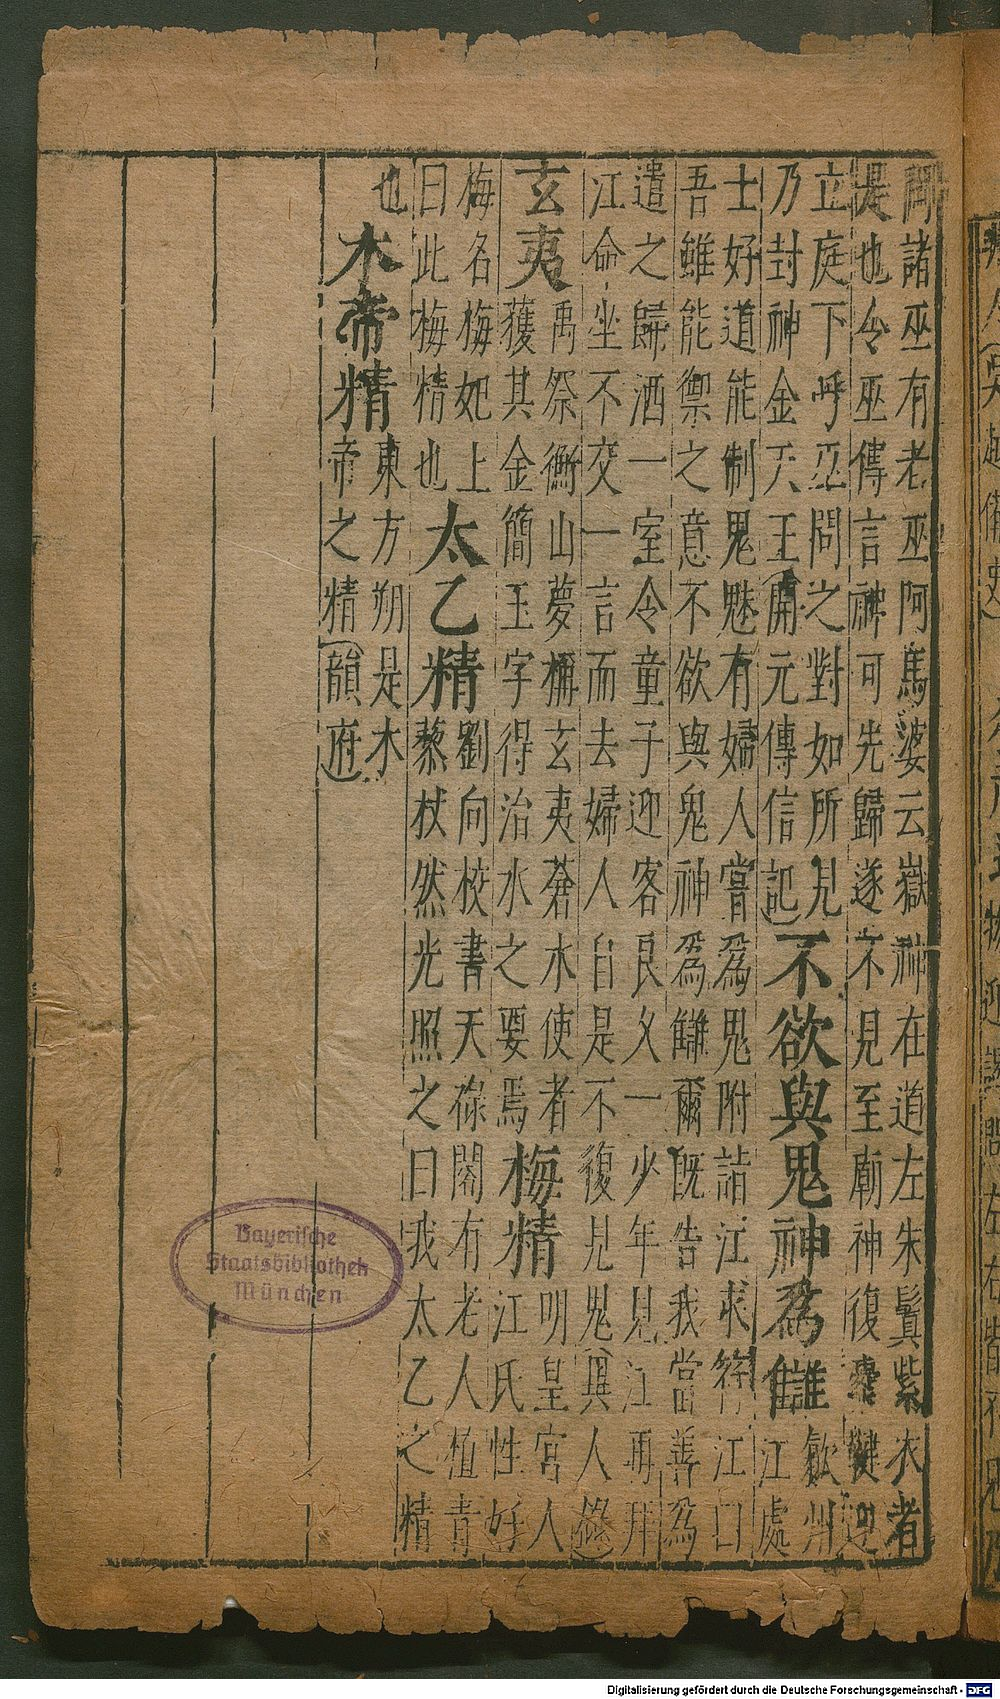 問諸巫有老巫阿馬婆云嶽神在道左朱鬓紫衣者
是也令巫傳言神可先歸遂不見至廟神復櫜鞬迎
立庭下呼巫問之對如所見
乃封神金天王(開元傳信記)
不欲與鬼神為讎
歙州
江處
士好道能制鬼魅有婦人嘗為鬼附詣江求符江曰
吾雖能禦之意不欲與鬼神為讎爾既告我當善為
遣之歸洒一室令童子迎客良久一少年見江再拜
江命坐不交一言而去婦人自是不復見鬼(異人錄)
玄夷
禹祭衡山夢稱玄夷蒼水使者
獲其金簡玉字得治水之要焉
梅精
明皇宮人
江氏性好
梅名梅妃上
曰此梅精也
太乙精
劉向校書天祿閣有老人植青
藜杖然光照之曰我太乙之精
也
木帝精
東方朔是木
帝之精(韻府)
Bayerische
Staatsbibliothek
München
Digitalisierung gefördert durch die Deutsche Forschungsgemeinschaft - DFG